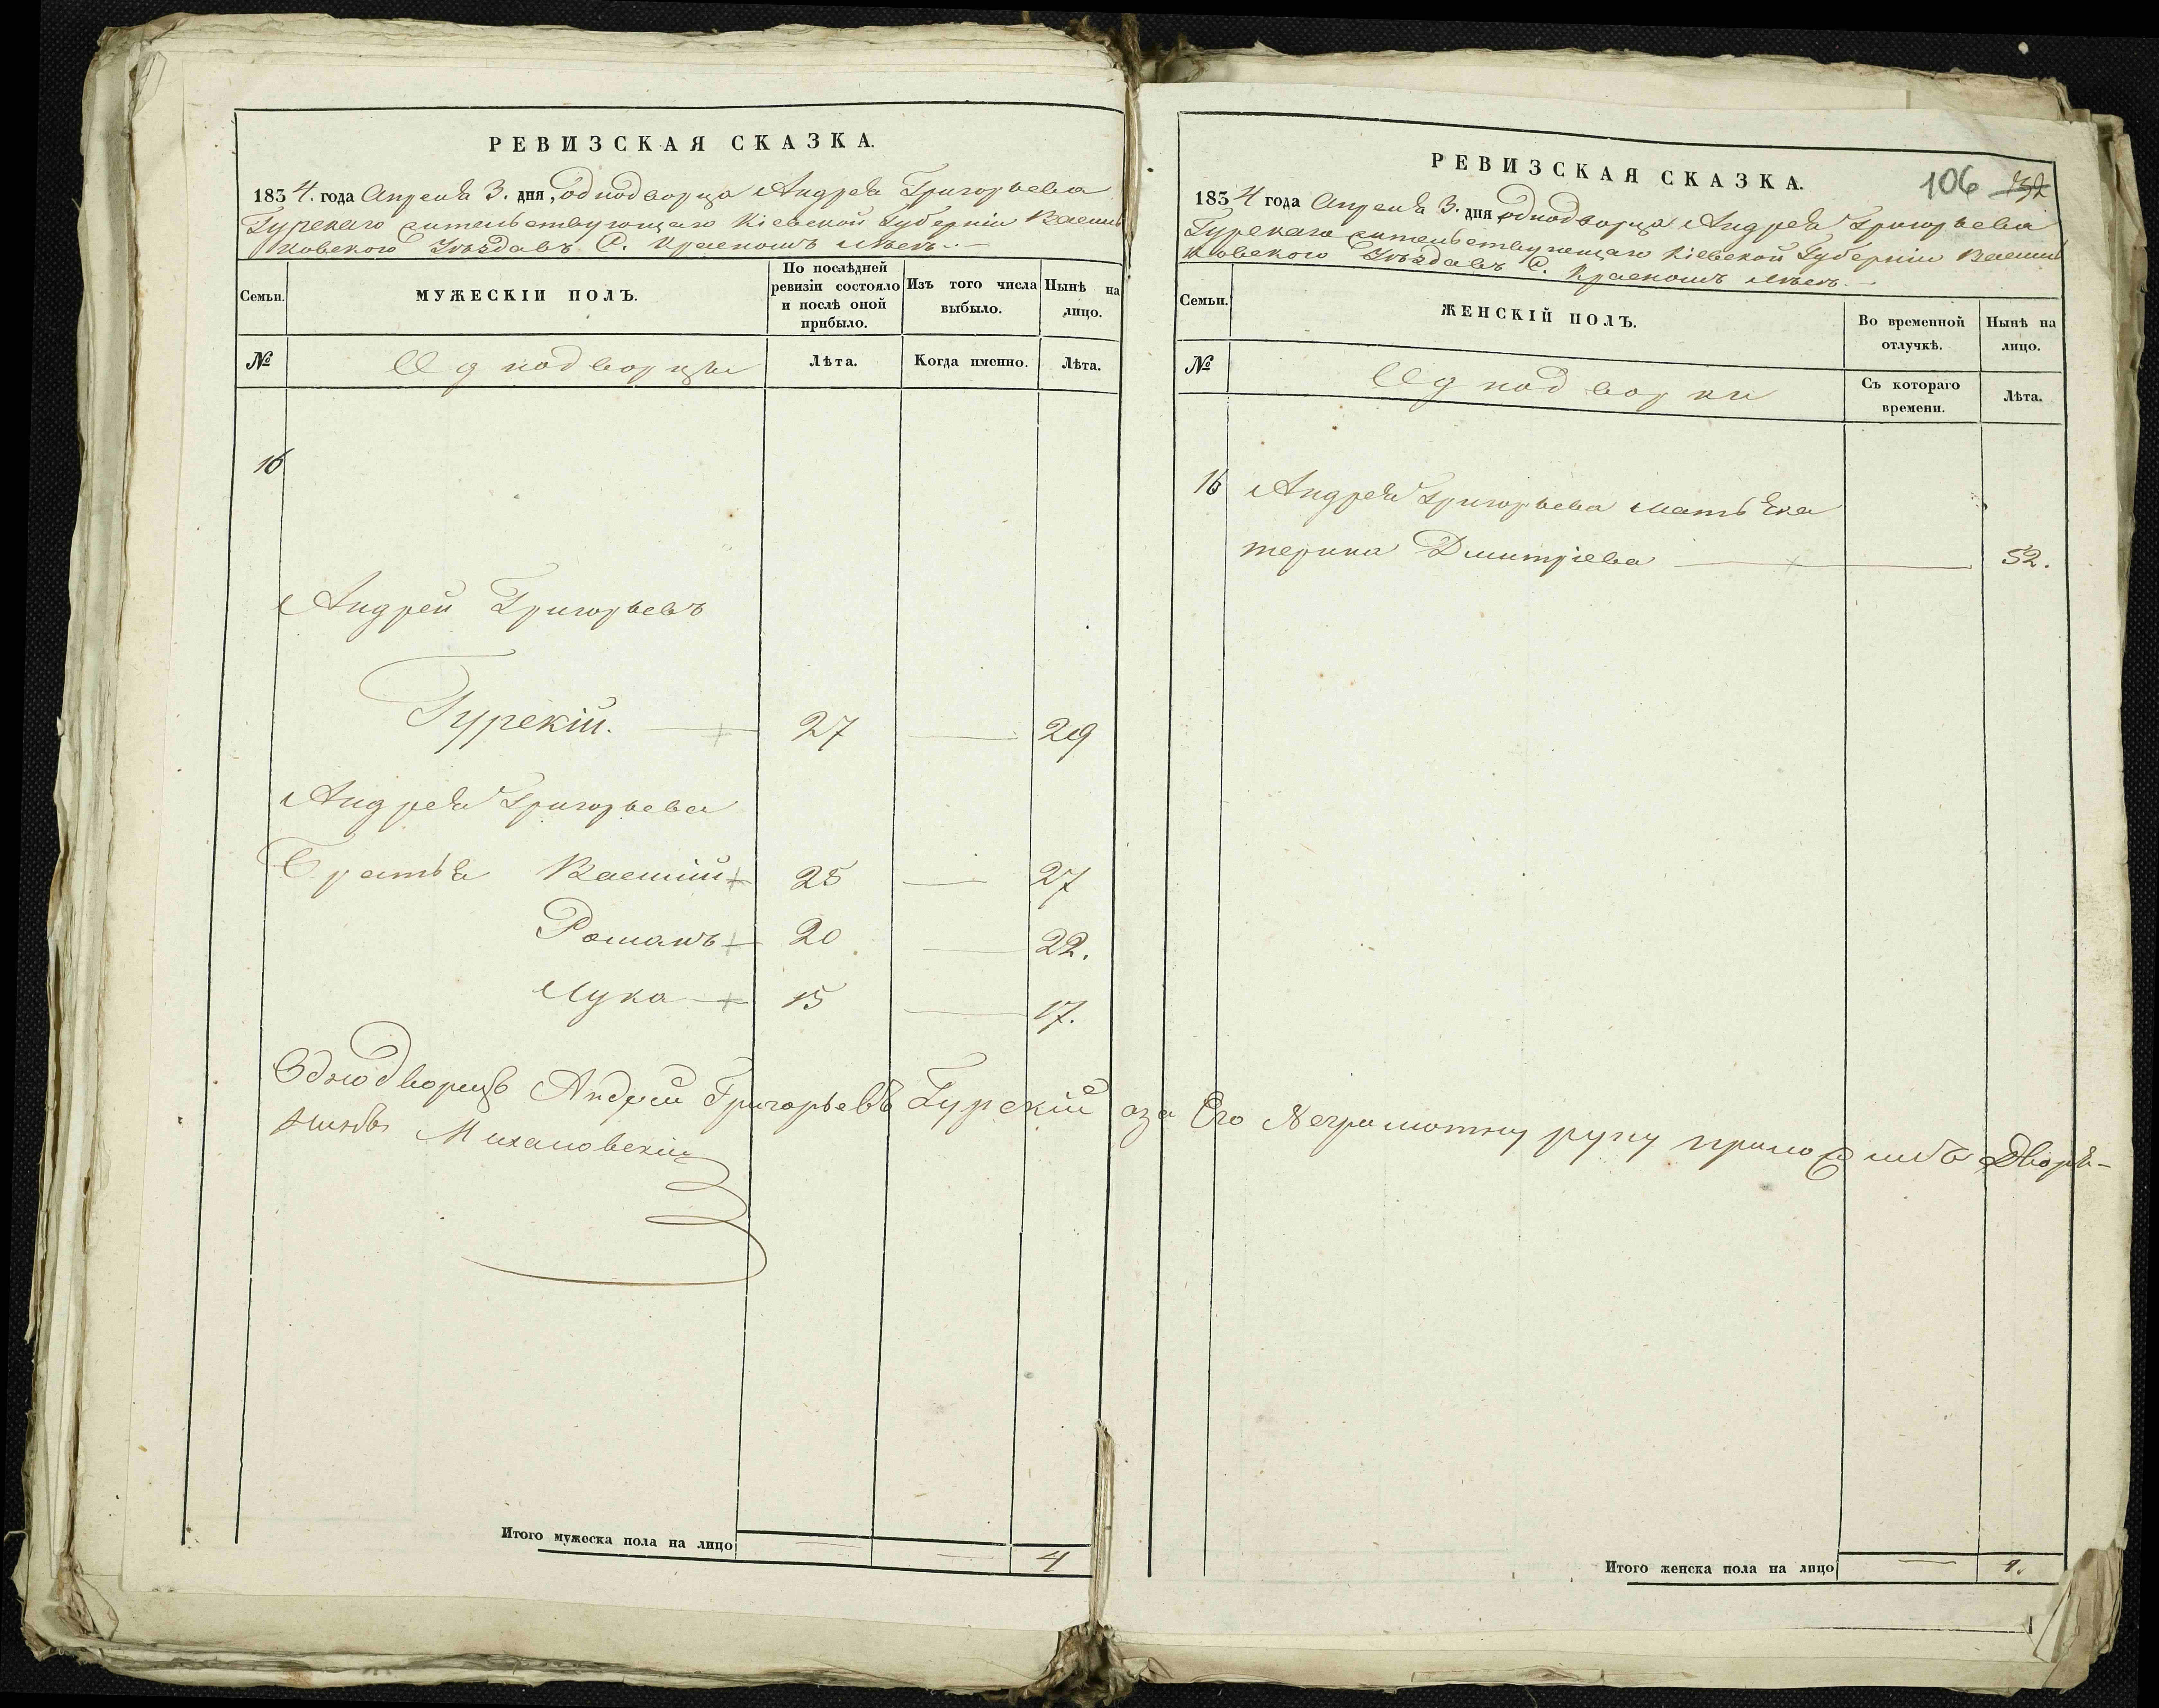 РЕВИЗСКАЯ СКАЗКА.
1834. года Апреля 3. дня, однодворца Андрея Григорьева
Гурскаго жительствующаго Кіевской Губерніи Василь
ковского Уѣзда въ С. Красномъ лѣсѣ.
Семьи.
МУЖЕСКІИ ПОЛЪ.
По послѣдней ревизіи состояло и послѣ оной прибыло.
Изъ того числа выбыло.
Нынѣ на лицо.
№
Однодворцы
Лѣта.
Когда именно.
Лѣта.
16
Андрей Григорьевъ
Гурскій. 27 — 29
Андрея Григорьева
Братья Василий 25 — 27
Романъ 20 — 22.
Лука 15 — 17.
Однодворецъ Андрей Григорьевъ Гурскій аза Его Неграмотну руку приложилъ Дворя-
нинъ Михаловскій
Итого мужеска пола на лицо — — 4
РЕВИЗСКАЯ СКАЗКА.
106
1834 года Апреля 3. дня однодворца Андрея Григорьева
Гурскаго жительствующаго Кіевской Губерніи Василь
ковского Уѣзда въ С. Красномъ лѣсѣ.
Семьи.
ЖЕНСКІЙ ПОЛЪ.
Во временной отлучкѣ.
Нынѣ на лицо.
№
Однодворки
Съ котораго времени.
Лѣта.
16 Андрея Григорьева мать Ека
терина Дмитріева — 52.
Итого женска пола на лицо — 1.